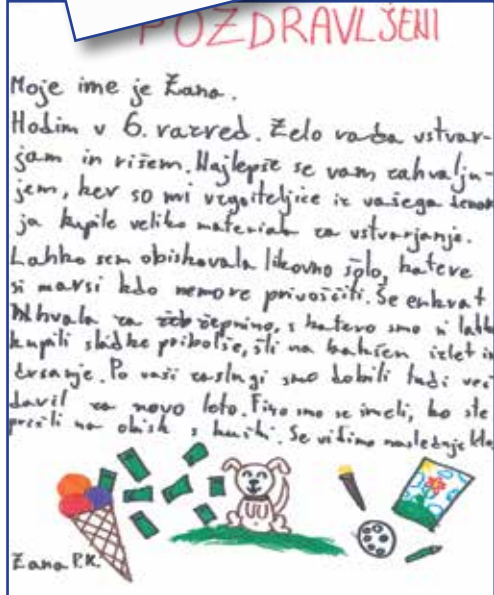 POZDRAVLJENI
Moje ime je Žana.
Hodim v 6. razred. Zelo rada ustvar-
jam in rišem. Najlepše se vam zahvalju-
jem, ker so mi vzgojiteljice iz vašega denar
ja kupile veliko materiala za ustvarjanje.
Lahko sem obiskovala likovno šolo, katere
si marsi kdo nemore privoščiti. Še enkrat
hvala za žepnino, s katero smo si lahko
kupili sladke priboljše, šli na kakšen izlet in
drsanje. Po vaši zaslugi smo dobili tudi več
daril za novo leto. Fino smo se imeli, ko ste
prišli na obisk s kužki. Se vidimo naslednje leto
Žana P.K.